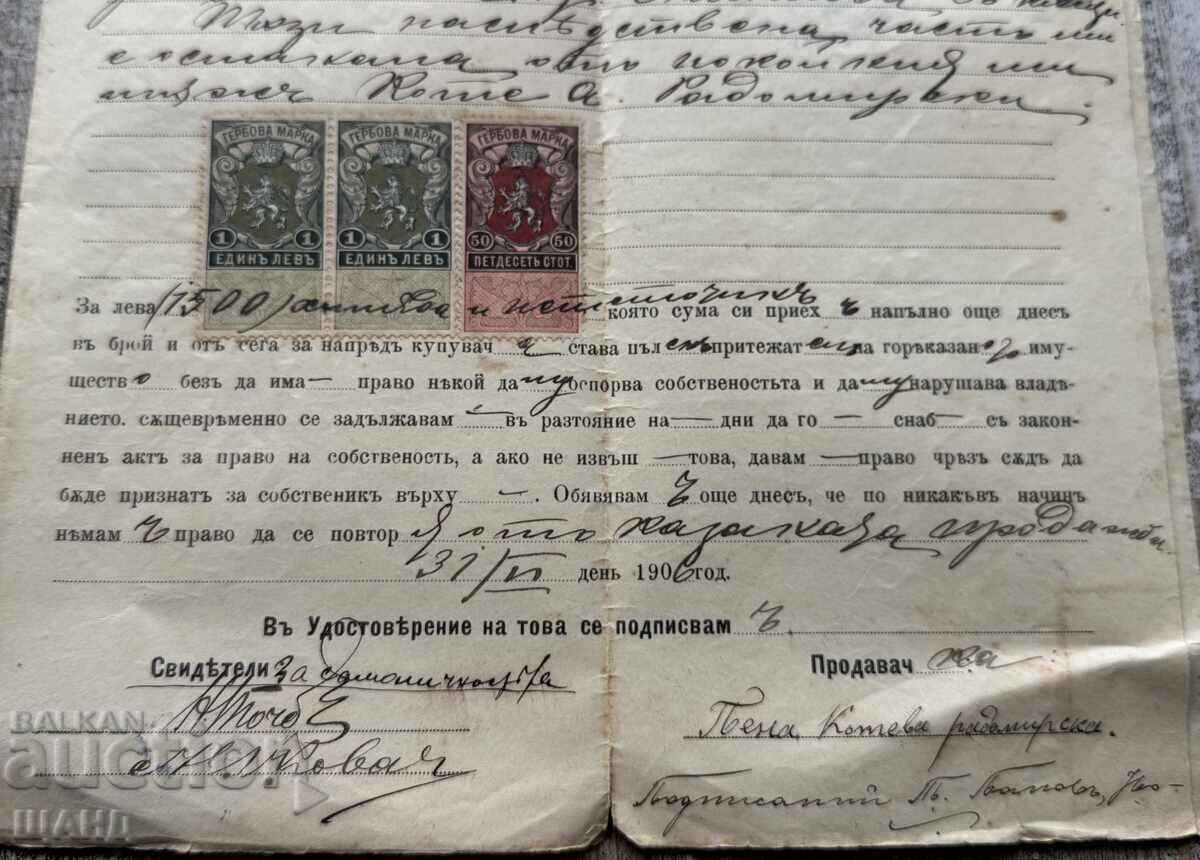 Тази наследствена часть ми
е останала отъ покойния ми
мѫжъ Коте А. Радомирски.
ГЕРБОВА МАРКА ГЕРБОВА МАРКА ГЕРБОВА МАРКА
1 1 1 1 50 50
ЕДИНЪ ЛЕВЪ ЕДИНЪ ЛЕВЪ ПЕТДЕСЕТЬ СТОТ.
За лева (1500) хилядо и петстотинъ която сума си приех ъ напълно още днесъ
въ брой и отъ сега за напрѣдъ купувач а става пъл нъ притежат на горѣказан о иму-
ществ о безъ да има — право нѣкой да му оспорва собственостьта и да му нарушава владѣ-
нието. сѫщеврѣменно се задължавам — въ разтояние на — дни да го — снаб — съ закон-
ненъ актъ за право на собственость, а ако не извъш — това, давам — право чрѣзъ сѫдъ да
бѫде признатъ за собственикъ върху —. Обявявам ъ още днесъ, че по никакъвъ начинъ
нѣмам ъ право да се повтор я отъ казаната продажба.
31/VI день 1906 год.
Въ Удостовѣрение на това се подписвам ъ
Свидѣтели за
Продавач ка
Пена Котева Радомирска.
Подписаний
BALKAN
auction
ЩАНД